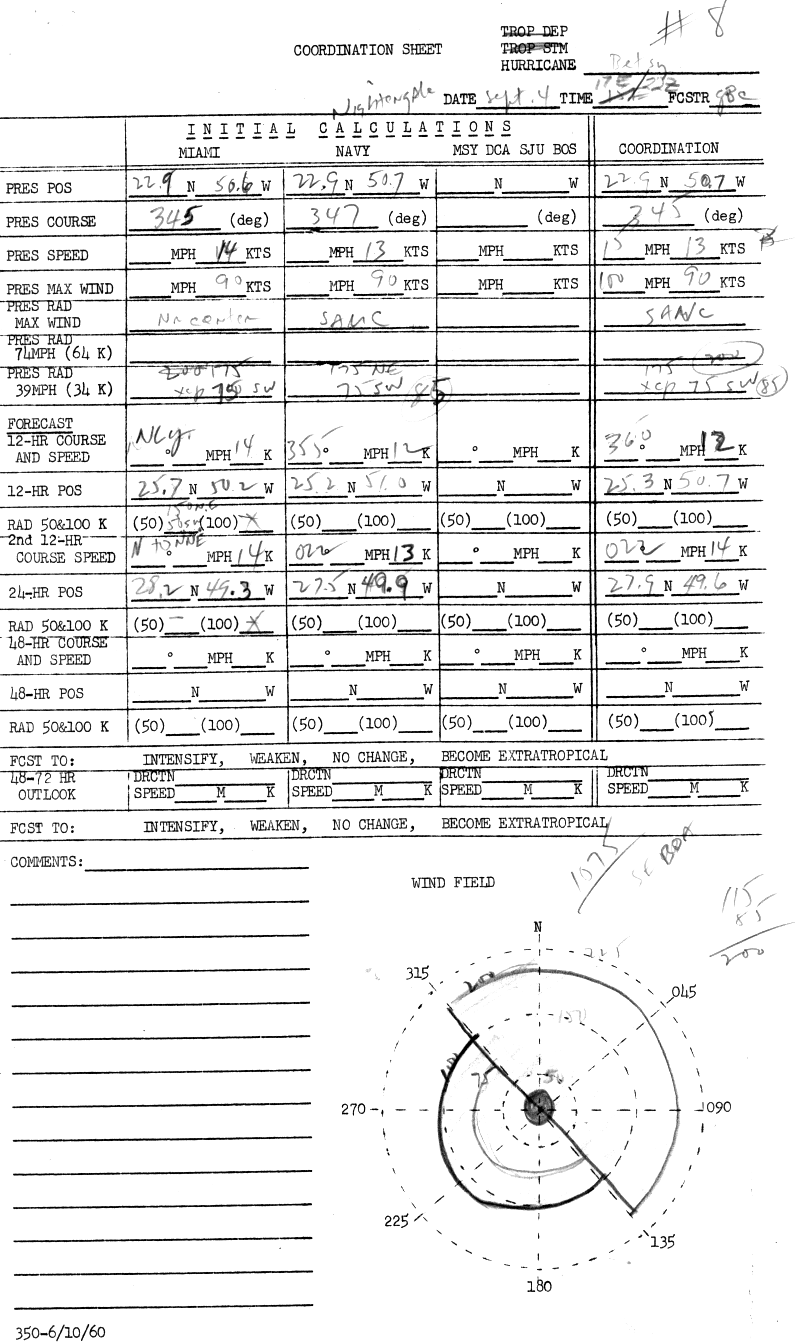 # 8
TROP DEP
COORDINATION SHEET TROP STM
HURRICANE Betsy
Nightengale DATE Sept. 4 TIME 22Z FCSTR gBc
INITIAL CALCULATIONS
MIAMI NAVY MSY DCA SJU BOS COORDINATION
PRES POS 22.9 N 50.6 W 22.9 N 50.7 W N W 22.9 N 50.7 W
PRES COURSE 345 (deg) 347 (deg) (deg) 345 (deg)
PRES SPEED MPH 14 KTS MPH 13 KTS MPH KTS 15 MPH 13 KTS
PRES MAX WIND MPH 90 KTS MPH 90 KTS MPH KTS 100 MPH 90 KTS
PRES RAD
MAX WIND Nr center SAME SAME
PRES RAD
74MPH (64 K)
PRES RAD 200 175 175 NE 175 200
39MPH (34 K) xcp 75 SW 75 SW 85 xcp 75 SW 85
FORECAST
12-HR COURSE Nly. ° MPH 14 K 355° MPH 12 K ° MPH K 360° MPH 12 K
AND SPEED
12-HR POS 25.7 N 50.2 W 25.2 N 51.0 W N W 25.3 N 50.7 W
150NE
RAD 50&100 K (50) 50SW (100) X (50) (100) (50) (100) (50) (100)
2nd 12-HR N to NNE
COURSE SPEED ° MPH 14 K 022 MPH 13 K ° MPH K 022 MPH 14 K
24-HR POS 28.2 N 49.3 W 27.5 N 49.9 W N W 27.9 N 49.6 W
RAD 50&100 K (50) — (100) X (50) (100) (50) (100) (50) (100)
48-HR COURSE
AND SPEED ° MPH K ° MPH K ° MPH K ° MPH K
48-HR POS N W N W N W N W
RAD 50&100 K (50) (100) (50) (100) (50) (100) (50) (100)
FCST TO: INTENSIFY, WEAKEN, NO CHANGE, BECOME EXTRATROPICAL
48-72 HR DRCTN DRCTN DRCTN DRCTN
OUTLOOK SPEED M K SPEED M K SPEED M K SPEED M K
FCST TO: INTENSIFY, WEAKEN, NO CHANGE, BECOME EXTRATROPICAL
COMMENTS:
1075
SE BDA
WIND FIELD
115
85
200
N
225
315
200
045
150
100
75
50
270
090
225
135
180
350-6/10/60